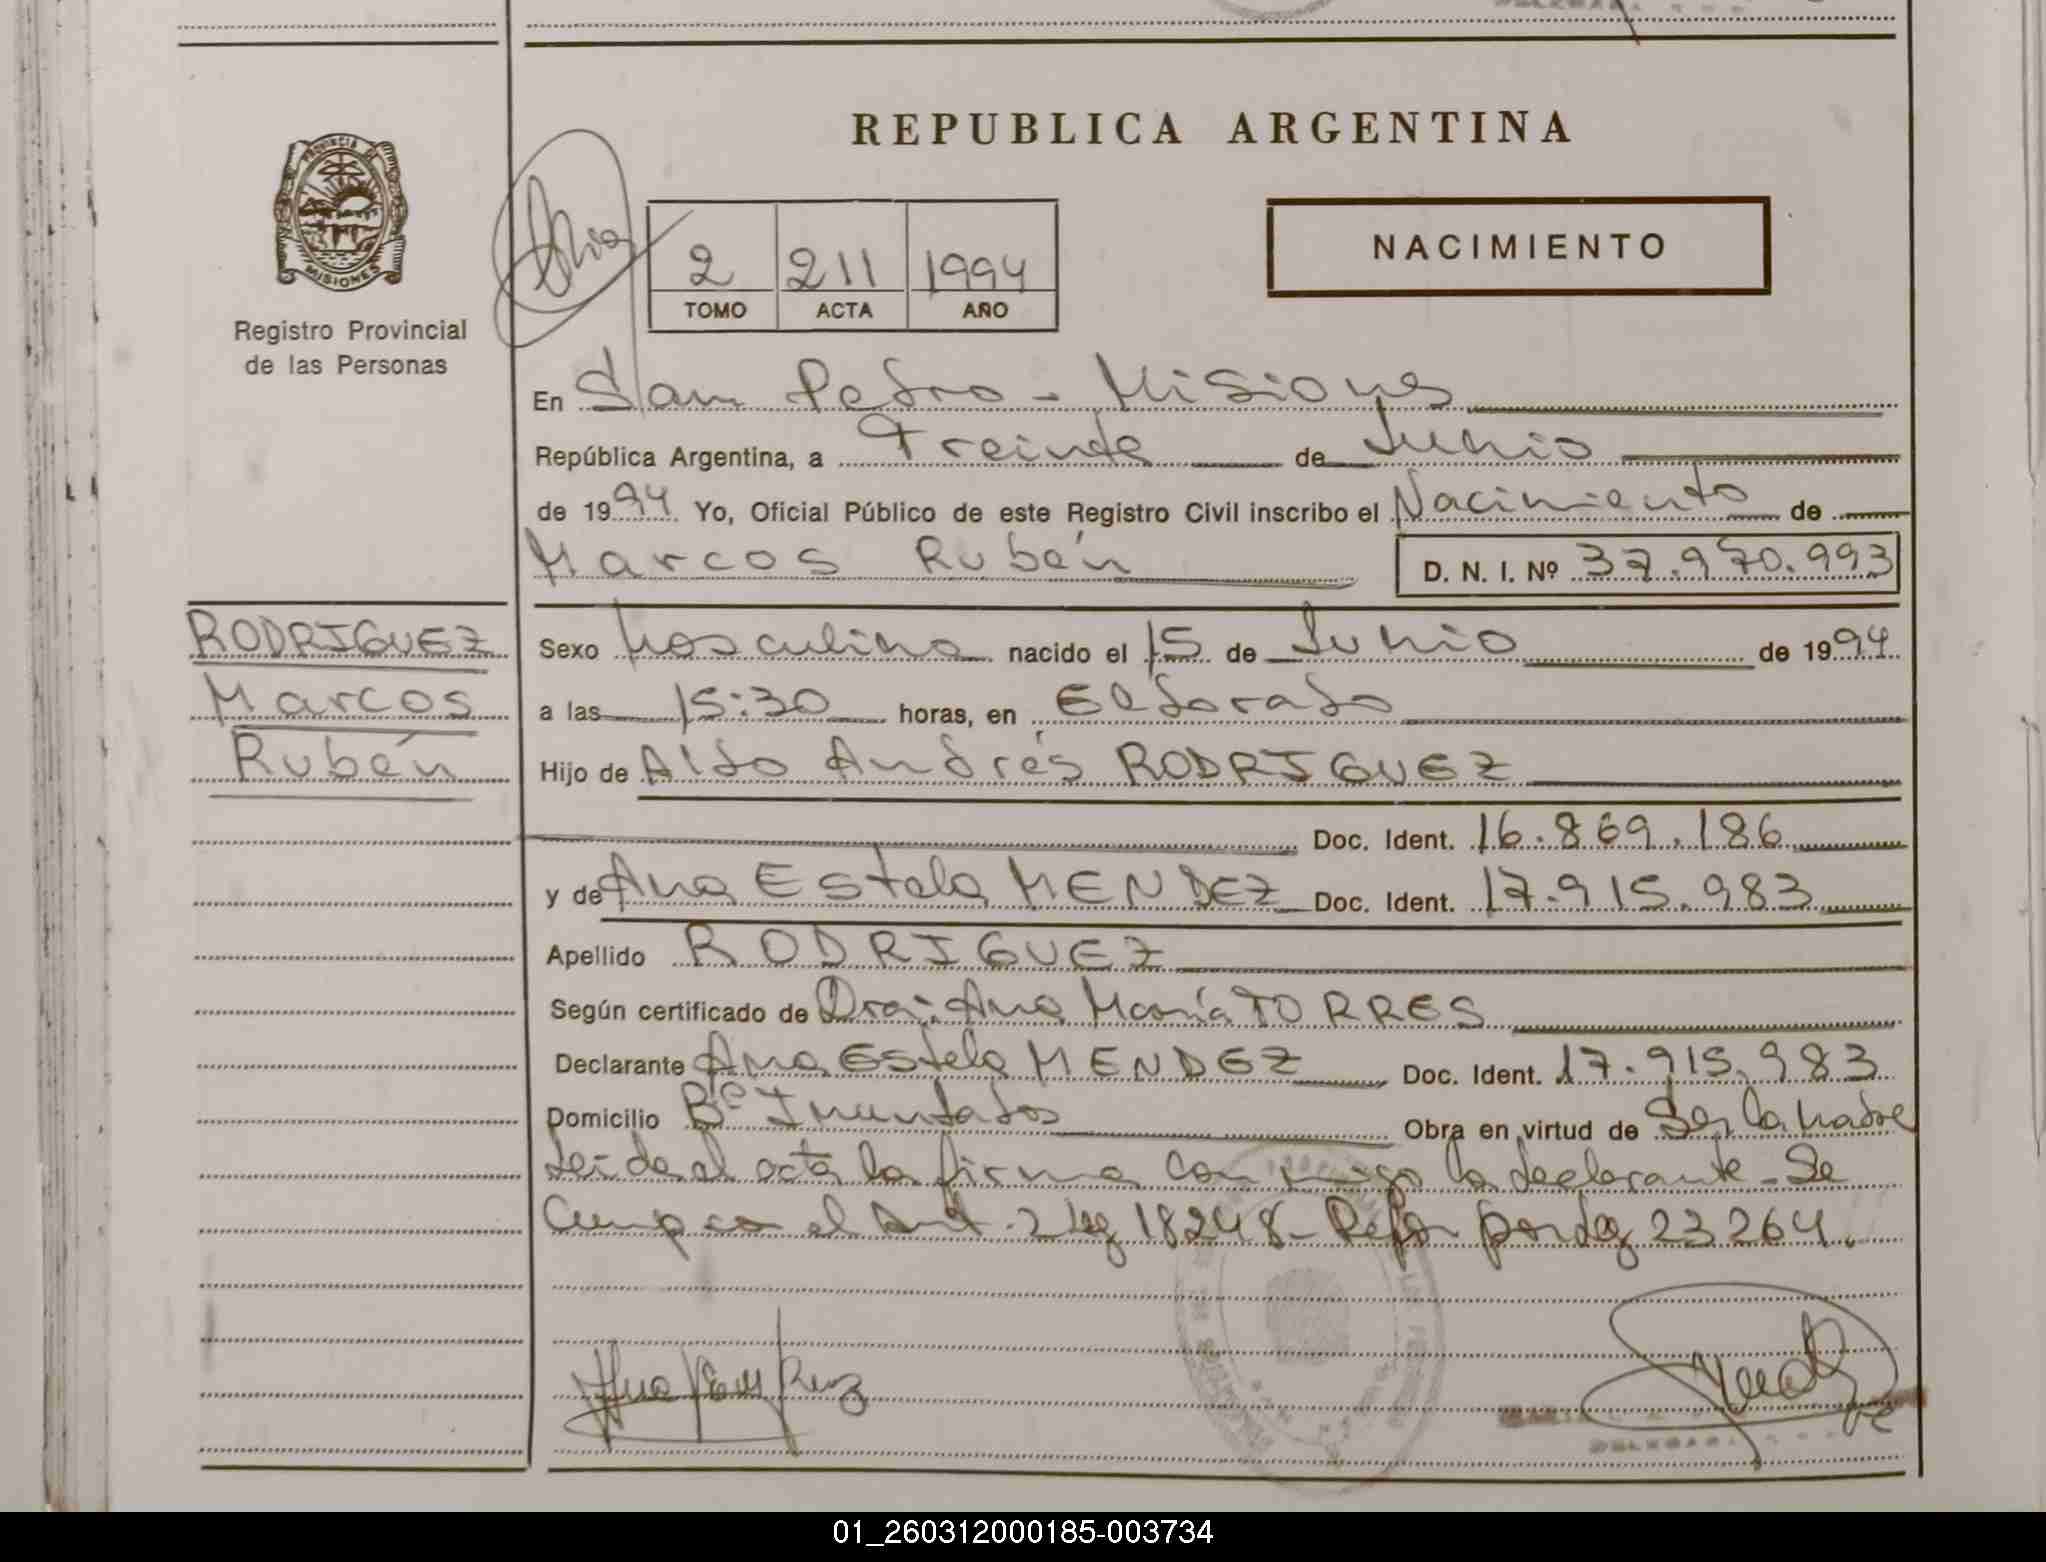 REPUBLICA ARGENTINA
PROVINCIA DE
MISIONES
Registro Provincial
de las Personas
NACIMIENTO
2 211 1994
TOMO ACTA AÑO
En San Pedro - Misiones
República Argentina, a Treinta de Junio
de 1994 Yo, Oficial Público de este Registro Civil inscribo el Nacimiento de
Marcos Rubén D. N. I. Nº 37.970.993
RODRIGUEZ
Marcos
Rubén
Sexo Masculino nacido el 15 de Junio de 1994
a las 15:30 horas, en Eldorado
Hijo de Aldo Andrés RODRIGUEZ
Doc. Ident. 16.869.186
y de Ana Estela MENDEZ Doc. Ident. 17.915.983
Apellido RODRIGUEZ
Según certificado de Dra: Ana María TORRES
Declarante Ana Estela MENDEZ Doc. Ident. 17.915.983
Domicilio Bº Inundados Obra en virtud de Ser la madre
Leída el acta la firma conmigo la declarante - Se
Cumpco el Art. 2 Ley 18248 - Refor por Ley 23264.
01_260312000185-003734